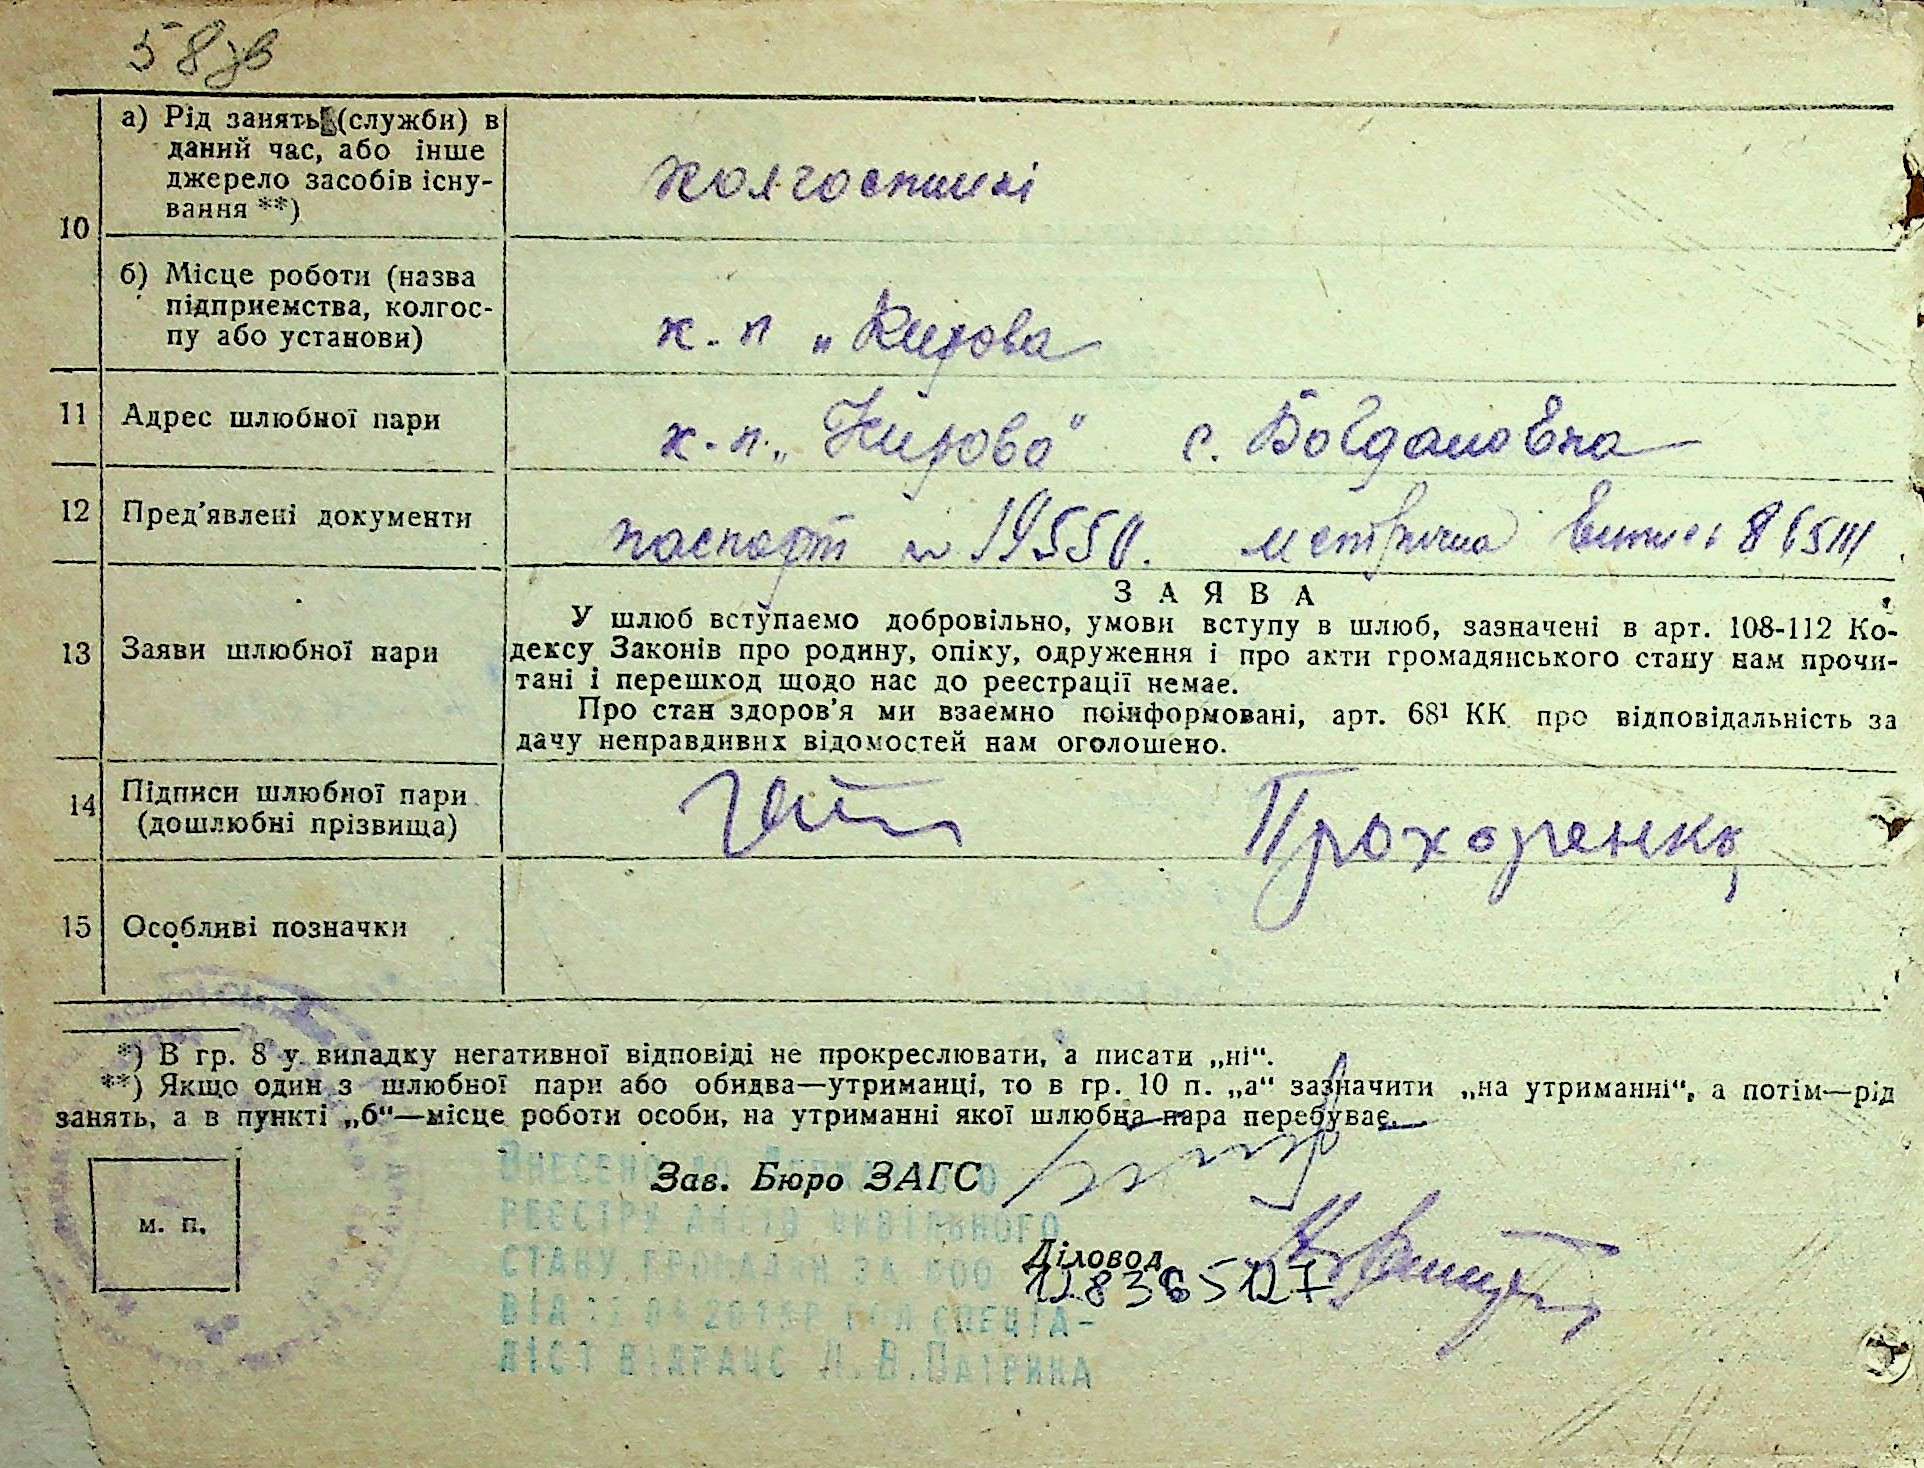 58 зв
10
а) Рід занять (служби) в
даний час, або інше
джерело засобів існу-
вання **)
колгоспники
б) Місце роботи (назва
підприємства, колгос-
пу або установи)
к. п „Кирова
11 Адрес шлюбної пари к. п. „Кирова" с. Богдановка
12 Пред'явлені документи паспорт № 19550. метрична
13 Заяви шлюбної пари
ЗАЯВА
У шлюб вступаємо добровільно, умови вступу в шлюб, зазначені в арт. 108-112 Ко-
дексу Законів про родину, опіку, одруження і про акти громадянського стану нам прочи-
тані і перешкод щодо нас до реєстрації немає.
Про стан здоров'я ми взаємно поінформовані, арт. 68¹ КК про відповідальність за
дачу неправдивих відомостей нам оголошено.
14 Підписи шлюбної пари
(дошлюбні прізвища)
Прохоренко
15 Особливі позначки
*) В гр. 8 у випадку негативної відповіді не прокреслювати, а писати „ні".
**) Якщо один з шлюбної пари або обидва—утриманці, то в гр. 10 п. „а" зазначити „на утриманні", а потім—рід
занять, а в пункті „б"—місце роботи особи, на утриманні якої шлюбна пара перебуває.
Зав. Бюро ЗАГС
м. п.
Діловод
128365127
Внесено до Державного
реєстру актів цивільного
стану громадян за
від
спеціа-
ліст В.Патрика